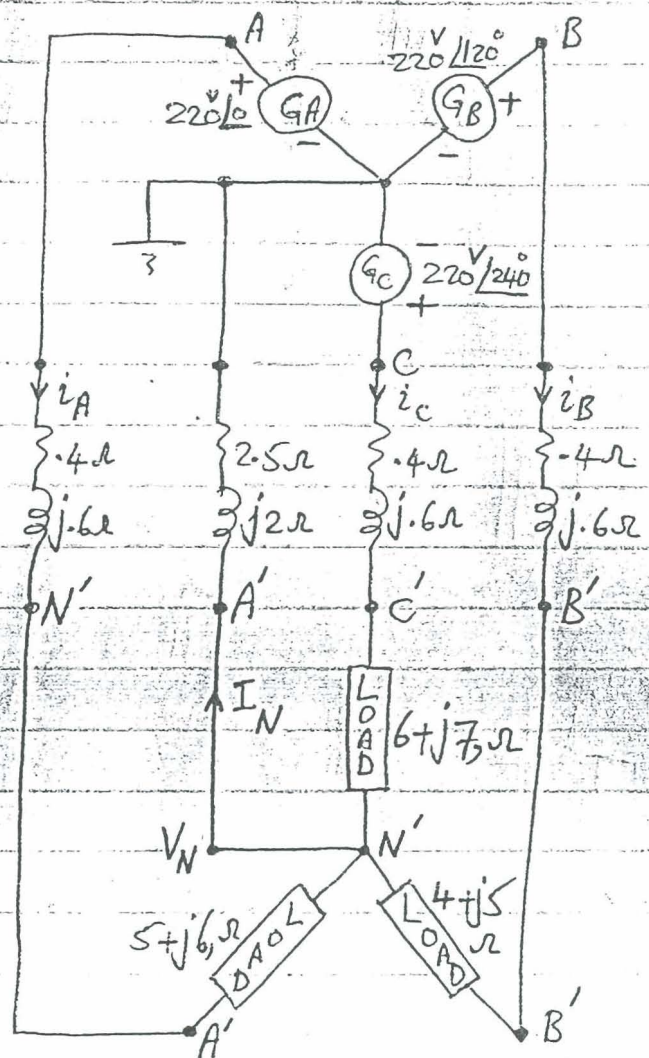 A
220V/120°
B
220V/0
+
GA
-
GB
+
-
3
-
GC
220V/240°
+
C
iA
iC
iB
.4Ω
2.5Ω
.4Ω
.4Ω
j.6Ω
j2Ω
j.6Ω
j.6Ω
N'
A'
C'
B'
IN
LOAD
6+j7,Ω
VN
N'
5+j6,Ω
LOAD
LOAD
4+j5
Ω
A'
B'